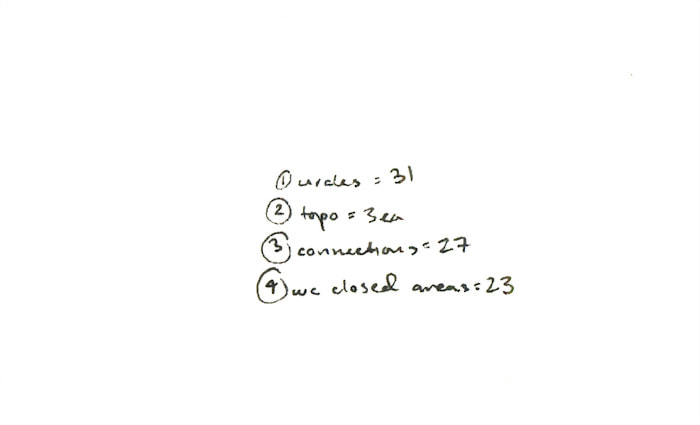 ① circles = 31
② topo = 3ea
③ connections = 27
④ wc closed areas = 23